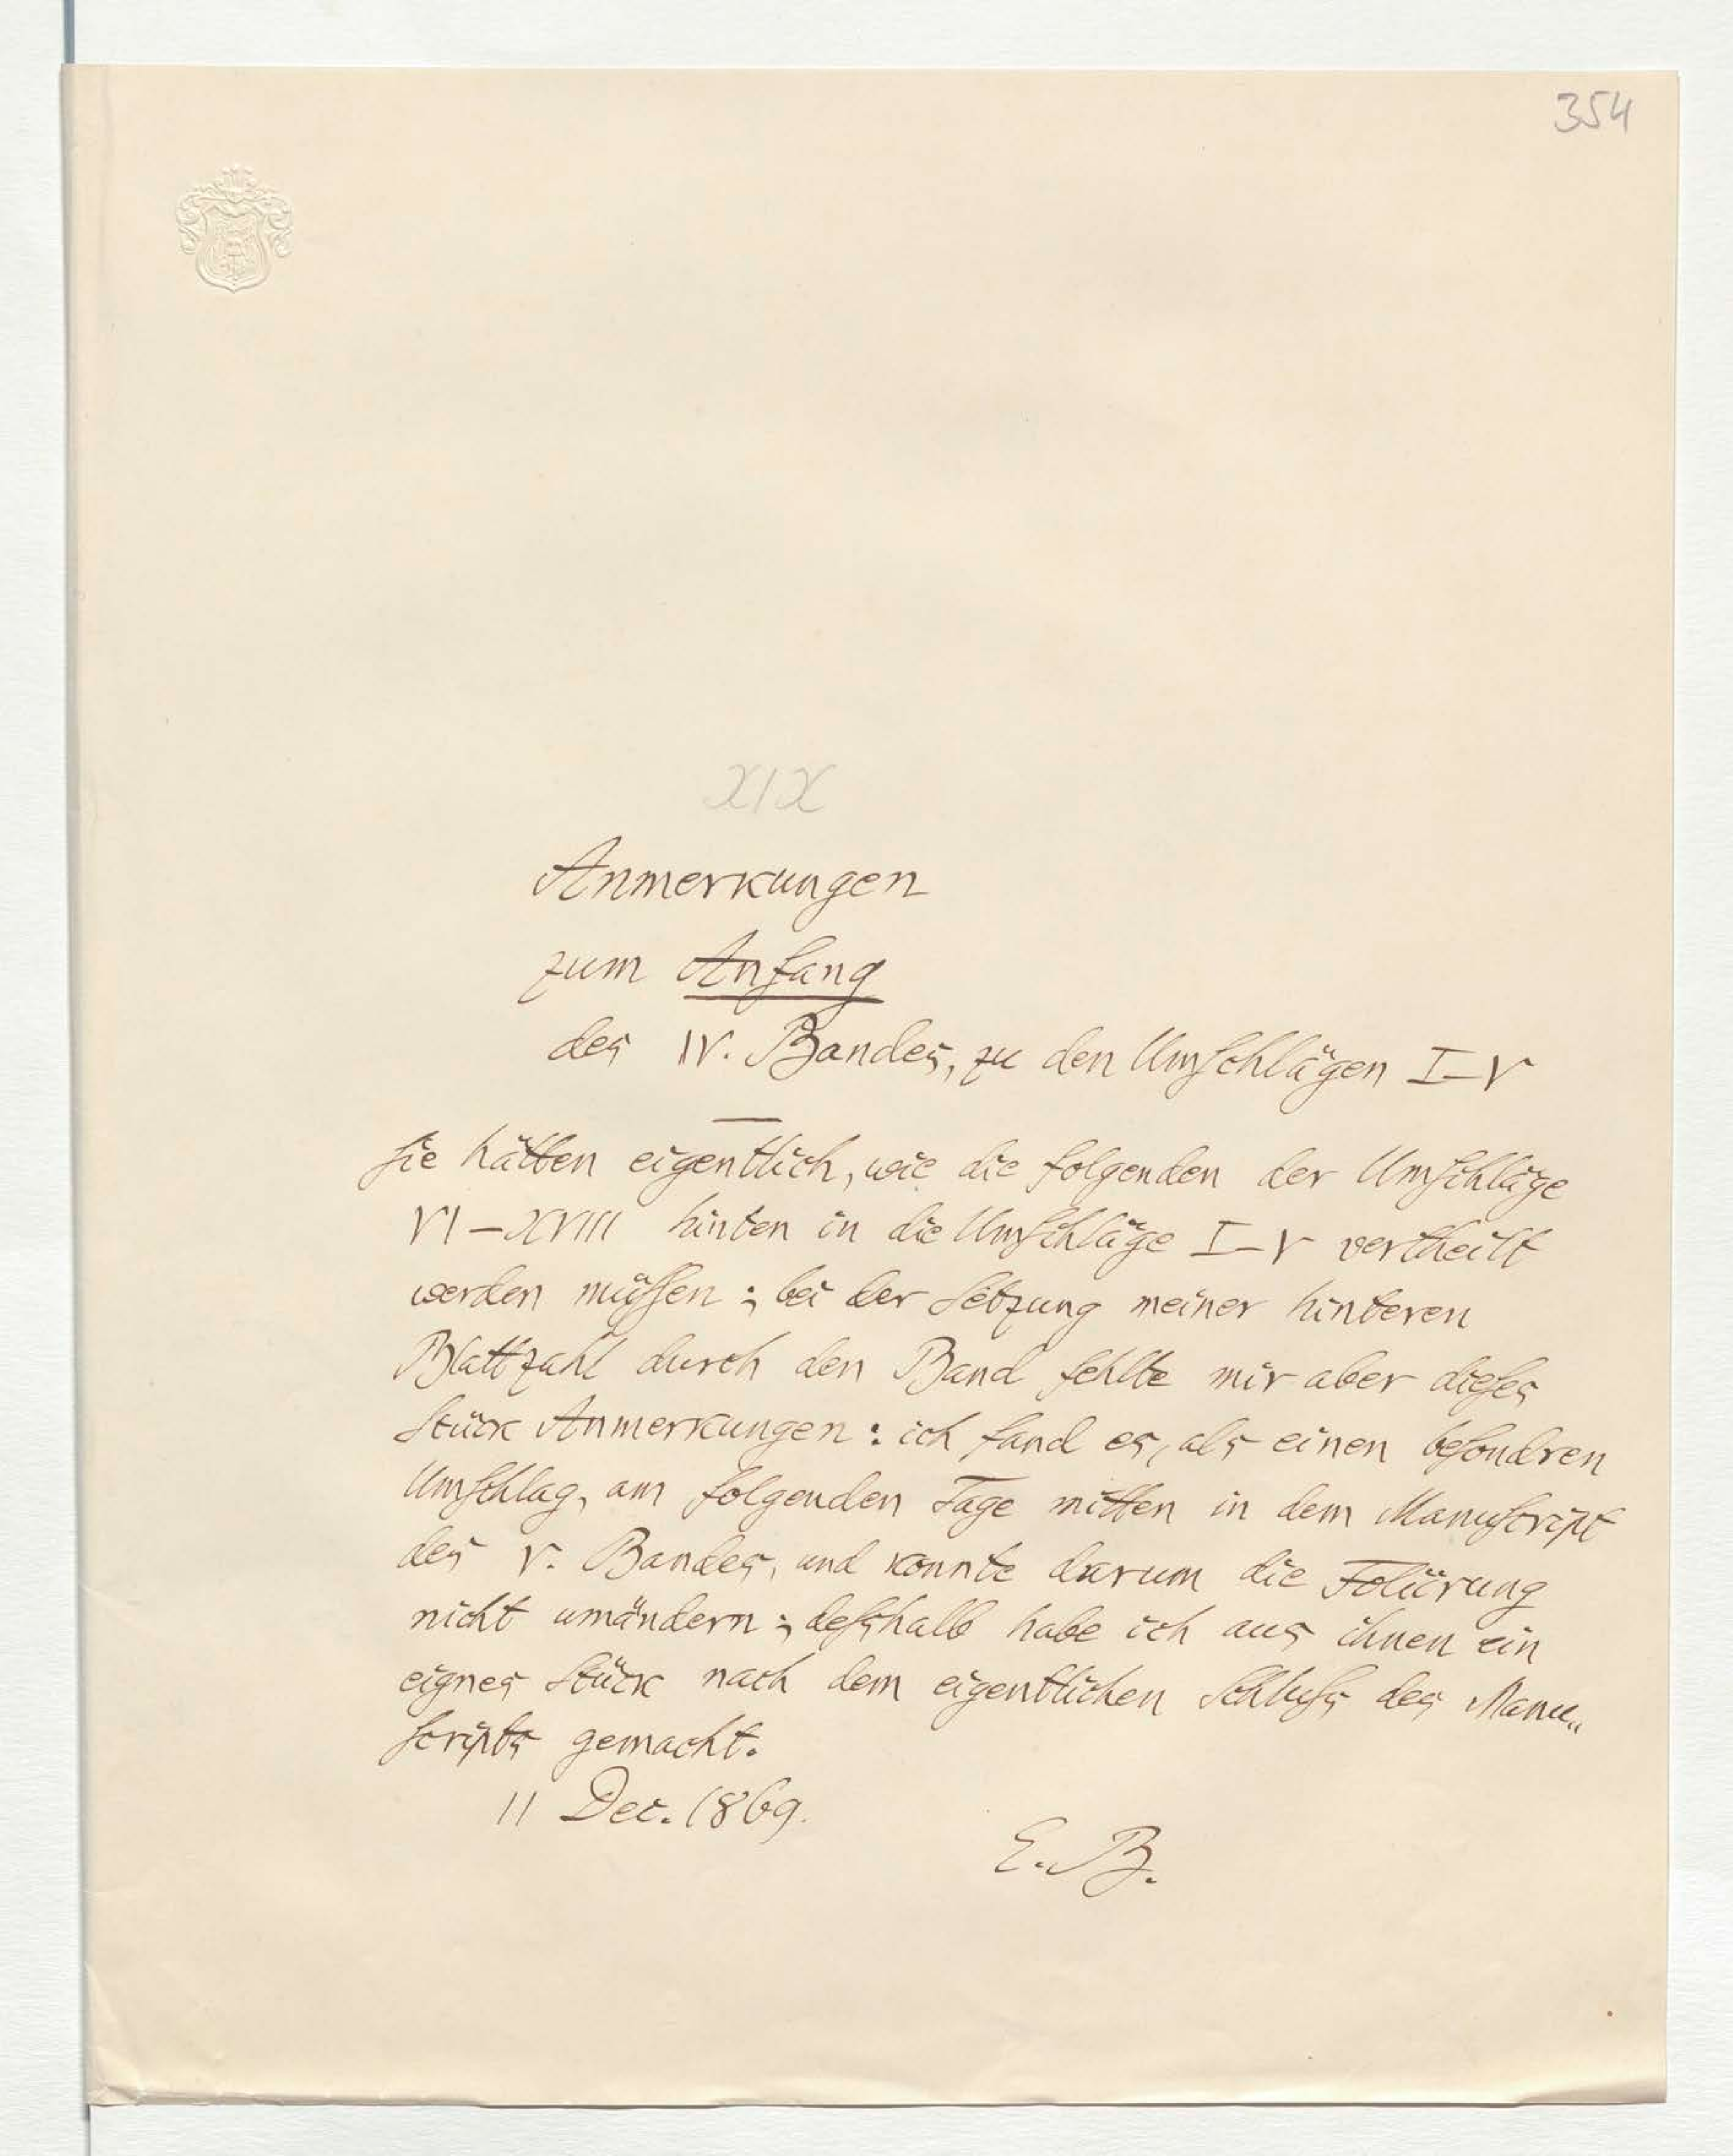 354
XIX
Anmerkungen
zum Anfang
des IV. Bandes, zu den Umschlägen I–V
Sie hätten eigentlich, wie die folgenden der Umschläge
VI–XVIII hinten in die Umschläge I–V vertheilt
werden müssen; bei der Setzung meiner hinteren
Blattzahl durch den Band fehlte mir aber dieses
Stück Anmerkungen: ich fand es, als einen besondren
Umschlag, am folgenden Tage mitten in dem Manuscript
des V. Bandes, und konnte darum die Foliirung
nicht umändern; desshalb habe ich aus ihnen ein
eignes Stück nach dem eigentlichen Schluss des Manu„
scripts gemacht.
11 Dec. 1869.
E. B.